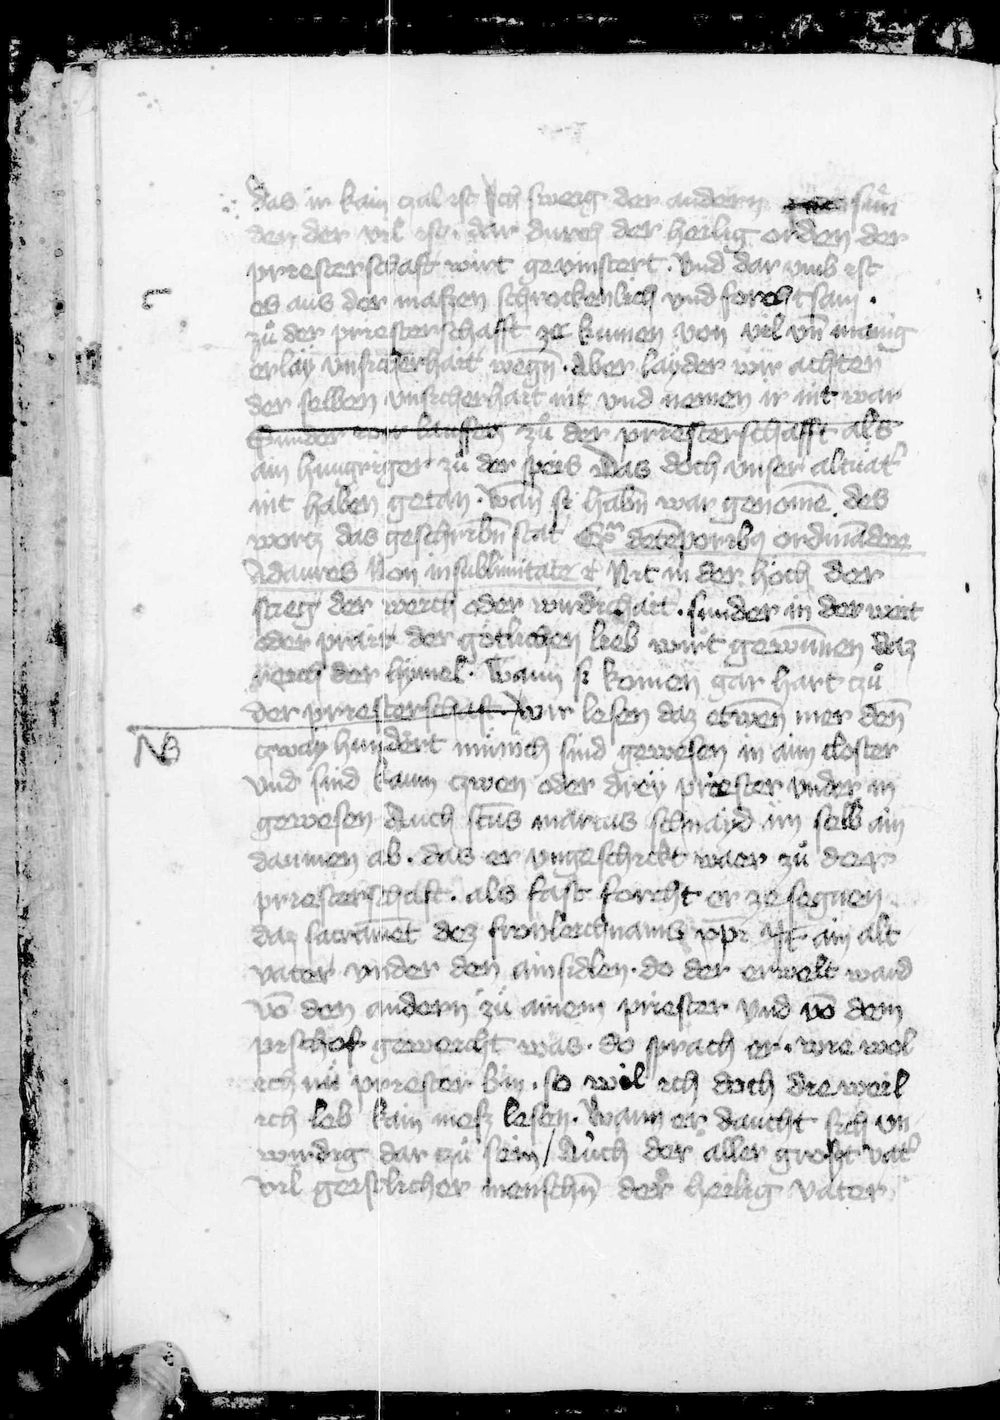 das in kain czal ist Ich sweig der andern sün
den der vil ist. dar durch der heilig orden der
priesterschaft wirt gevinstert. Vnd dar vmb ist
es aus der maßen schrockenlich vnd forchtsam.
zů der priesterschafft ze kumen von vil vn̄ manig
erlay vnsicherhait wegn̄. Aber layder wir achten
der selben vnsicherhait nit vnd nemen ir nit war
Sunder wir lauffen zů der priesterschafft als
ain hungriger zů der speis Das doch vnser altuät
nit haben getan. wan̄ si habn̄ war genome̅ des
wortz das geschribn̄ stat de te̅poribꝫ ordina̅dor
Ad aures Non in sublimitate Nit in der höch der
steig der werch oder wirdichait. sunder in der weit
oder prait der götlichen lieb wirt gewu̅nen daz
reich der hymel. Wann si komen gar hart zů
der priesterschaft. Wir lesen daz etwen̄ mer den̄
NB
czway hundert münich sind gewesen in aim closter
vnd sind kaum czwen oder drey priester vnder in
gewesen Auch sc̄us marcus schnaid im selb ain
daumen ab. das er vngeschickt waer zů der
priesterschaft. als fast forcht er ze segnen
daz sacrame̅t dez fronleichnams xp̄i Ist ain alt
vater vnder den ainsidlen. do der erwelt ward
vo̅ den andern zů ainem priester vnd vo̅ dem
pischof geweicht was. do sprach er. wie wol
ich nů priester bin. so wil ich doch die weil
ich leb kain meß lesen. Wann er daucht sich vn
wirdig dar zů sein / Auch der aller groͤst vat̓
vil geistlicher menschn̄ der heilig vater